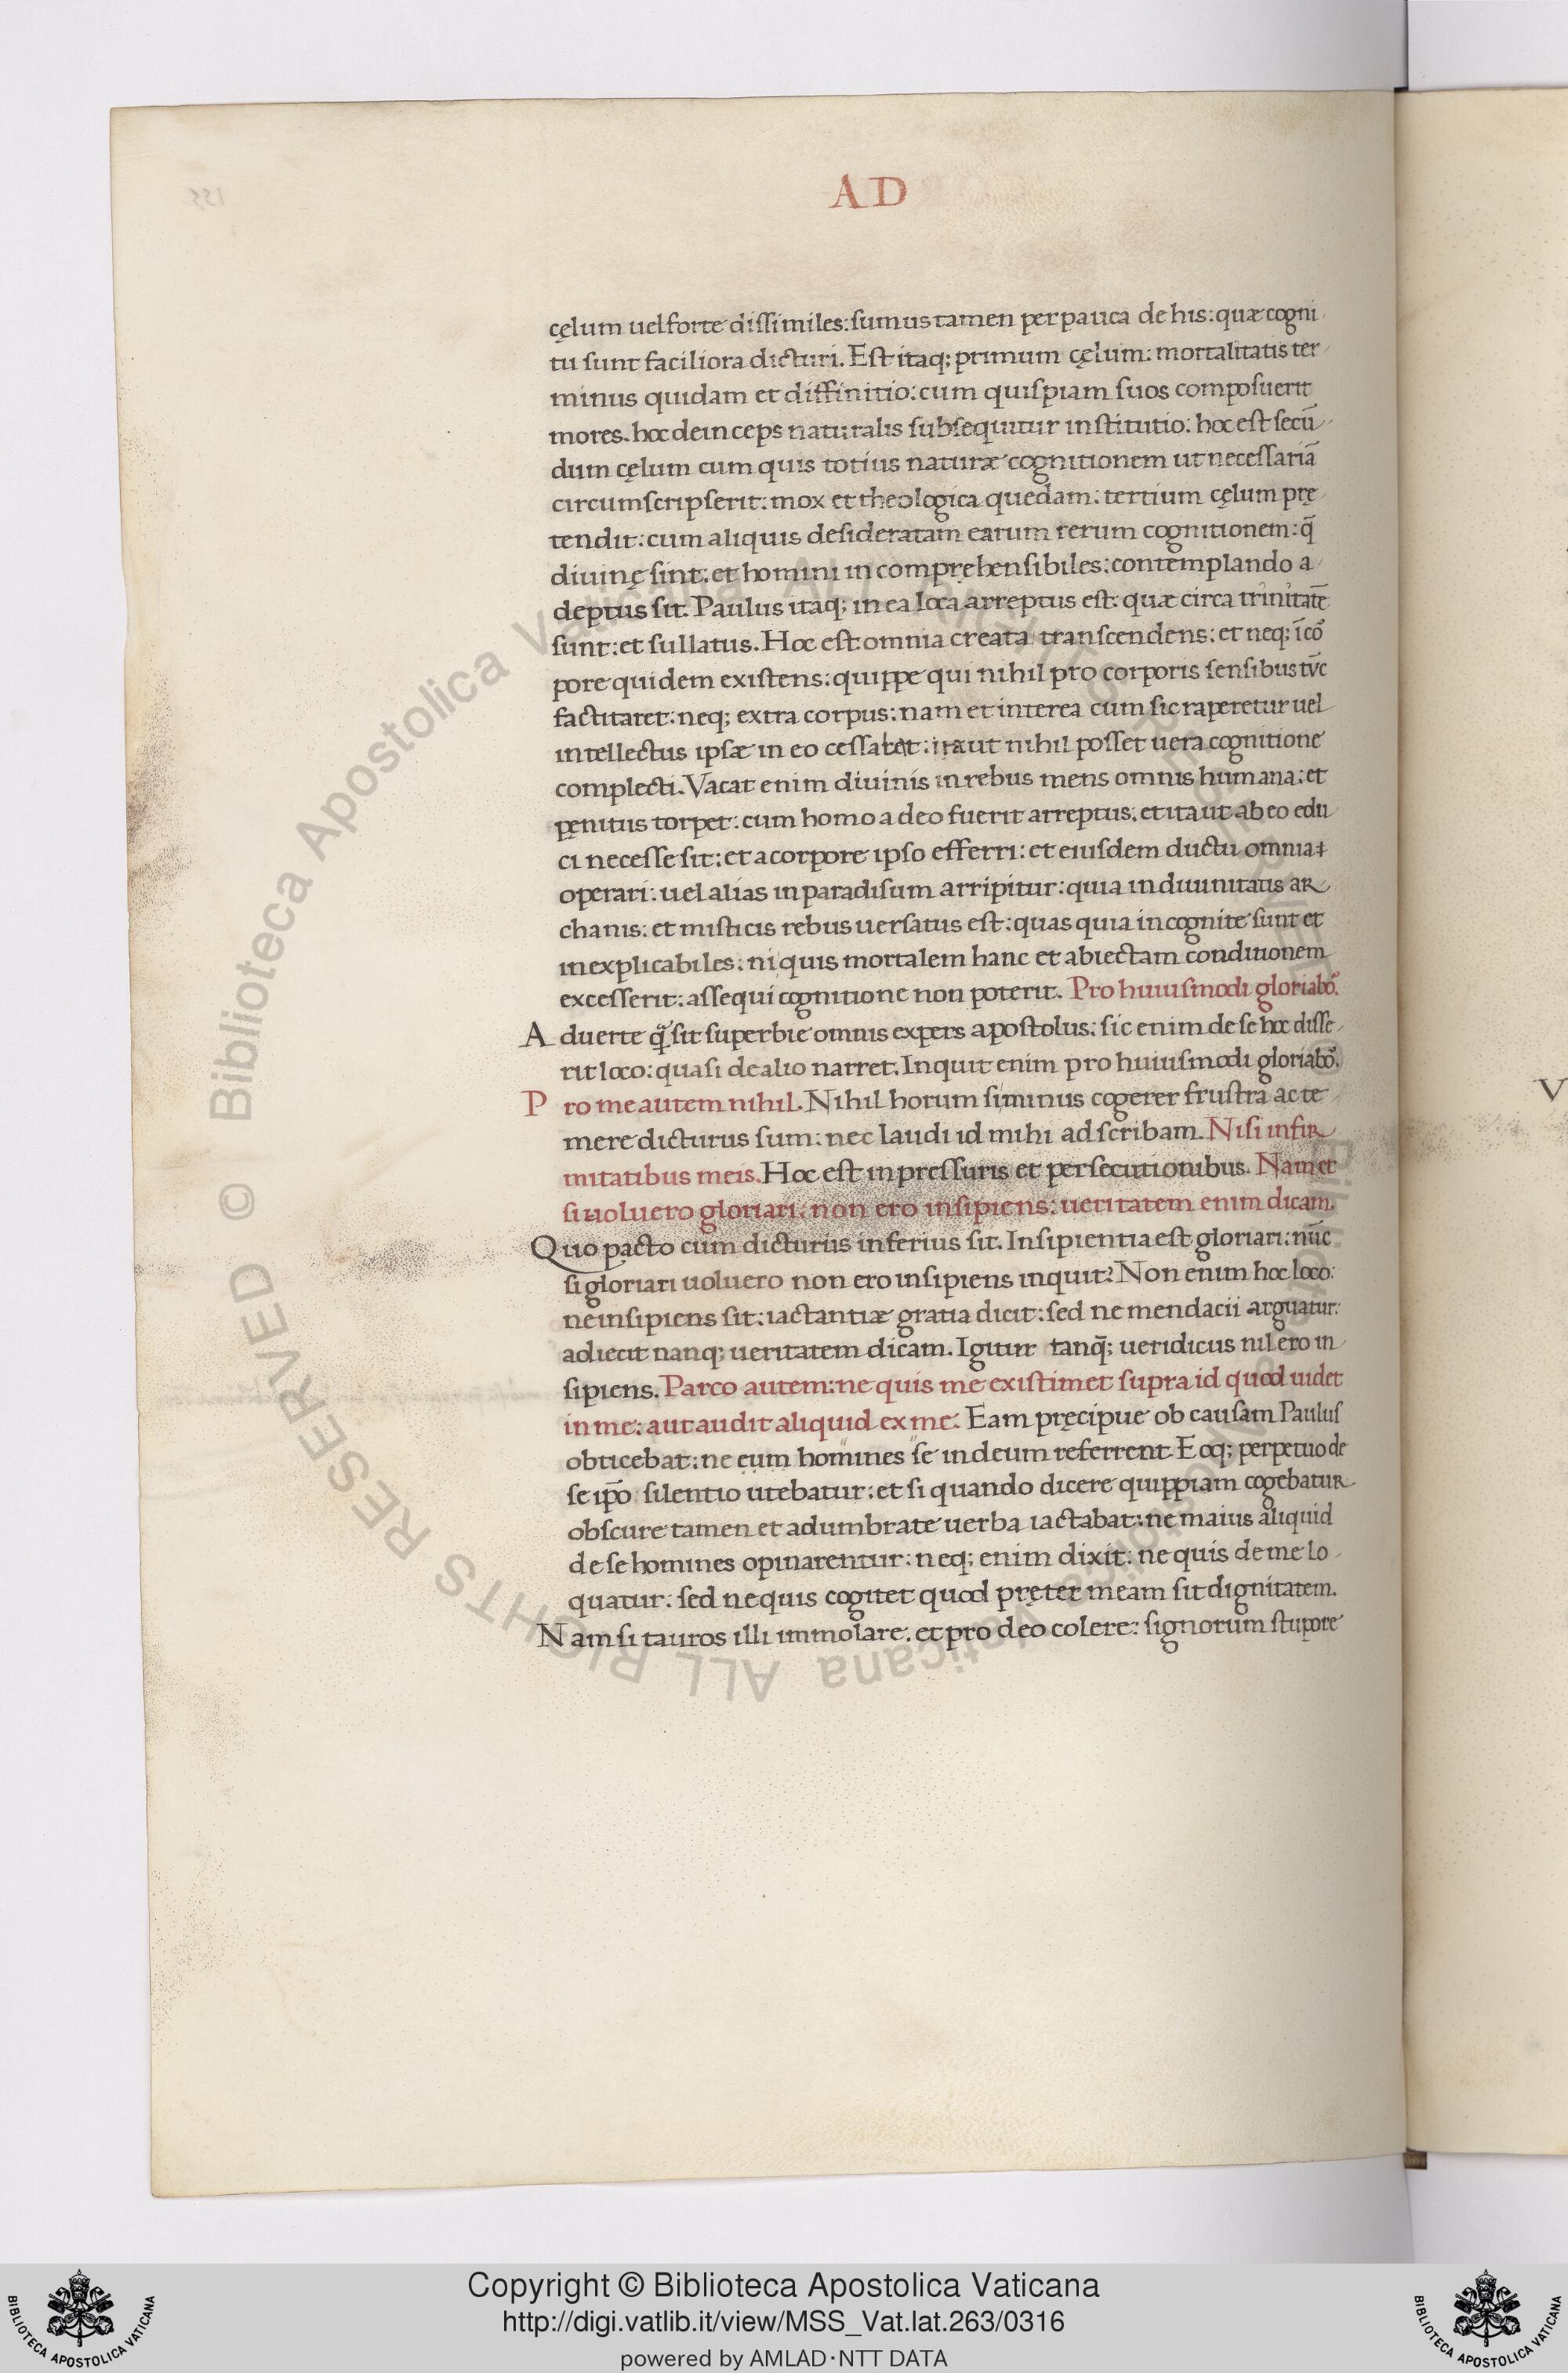 AD
cęlum uel forte dissimiles: sumus tamen perpauca de his: quæ cogni
tu sunt faciliora dicturi. Est itaq; primum cęlum: mortalitatis ter
minus quidam et diffinitio: cum quispiam suos composuerit
mores. hoc deinceps naturalis subsequitur institutio: hoc est secū
dum cęlum cum quis totius naturæ cognitionem ut necessariā
circumscripserit: mox et theologica quedam: tertium cęlum prę
tendit: cum aliquis desideratam earum rerum cognitionem: q̄
diuinę sint: et homini incomprehensibiles: contemplando a
deptus sit. Paulus itaq; in ea loca arreptus est: quæ circa trinitatē
sunt: et sullatus. Hoc est omnia creata transcendens: et neq; ī cor̄
pore quidem existens: quippe qui nihil pro corporis sensibus tūc
factitaret: neq; extra corpus: nam et interea cum sic raperetur uel
intellectus ipsæ in eo cessabat: ita ut nihil posset uera cognitione
complecti. Vacat enim diuinis in rebus mens omnis humana: et
pęnitus torpet: cum homo a deo fuerit arreptus: et ita ut ab eo edu
ci necesse sit: et a corpore ipso efferri: et eiusdem ductu omnia
operari: uel alias in paradisum arripitur: quia in diuinitatis ar
chanis: et misticis rebus uersatus est: quas quia incognite sunt et
inexplicabiles: ni quis mortalem hanc et abiectam conditionem
excesserit: assequi cognitione non poterit. Pro huiusmodi gloriabor̄.
Aduerte q̄ sit superbie omnis expers apostolus: sic enim de se hoc disse
rit loco: quasi de alio narret. Inquit enim pro huiusmodi gloriabor̄.
Pro me autem nihil. Nihil horum si minus cogerer frustra ac te
mere dicturus sum: nec laudi id mihi adscribam. Nisi infir
mitatibus meis. Hoc est in pressuris et persecutionibus. Nam et
si uoluero gloriari: non ero insipiens: ueritatem enim dicam.
Quo pacto cum dicturus inferius sit. Insipientia est gloriari: nūc
si gloriari uoluero non ero insipiens inquit? Non enim hoc loco:
ne insipiens sit: iactantiæ gratia dicit: sed ne mendacii arguatur:
adiecit nanq; ueritatem dicam. Igitur tanq̄; ueridicus nil ero in
sipiens. Parco autem: ne quis me existimet supra id quod uidet
in me: aut audit aliquid ex me. Eam pręcipue ob causam Paulus
obticebat: ne eum homines se in deum referrent. Eoq; perpetuo de
se ip̄o silentio utebatur: et si quando dicere quippiam cogebatur
obscure tamen et adumbrate uerba iactabat: ne maius aliquid
de se homines opinarentur: neq; enim dixit: ne quis de me lo
quatur: sed ne quis cogitet quod pręter meam sit dignitatem.
Nam si tauros illi immolare: et pro deo colere: signorum stupore
V
© Biblioteca Apostolica Vaticana ALL RIGHTS RESERVED
Copyright © Biblioteca Apostolica Vaticana
http://digi.vatlib.it/view/MSS_Vat.lat.263/0316
powered by AMLAD·NTT DATA
BIBLIOTECA APOSTOLICA VATICANA
BIBLIOTECA APOSTOLICA VATICANA